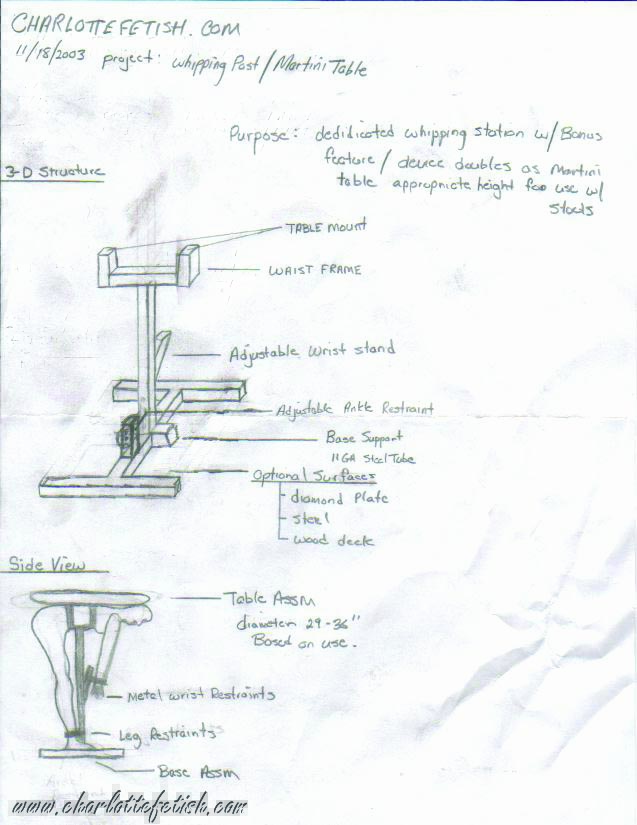 CHARLOTTEFETISH.COM
11/18/2003 project: Whipping Post/Martini Table
Purpose: dedidicated whipping station w/ Bonus
feature/device doubles as Martini
table appropriate height foo use w/
Stools
3-D Structure
TABLE mount
WAIST FRAME
Adjustable Wrist stand
Adjustable Ankle Restraint
Base Support
11 GA Steel Tube
Optional Surfaces
- diamond Plate
- steel
- wood deck
Side View
Table Assm
diameter 29-36"
Based on use.
Metal wrist Restraints
Leg Restraints
Base Assm
www.charlottefetish.com